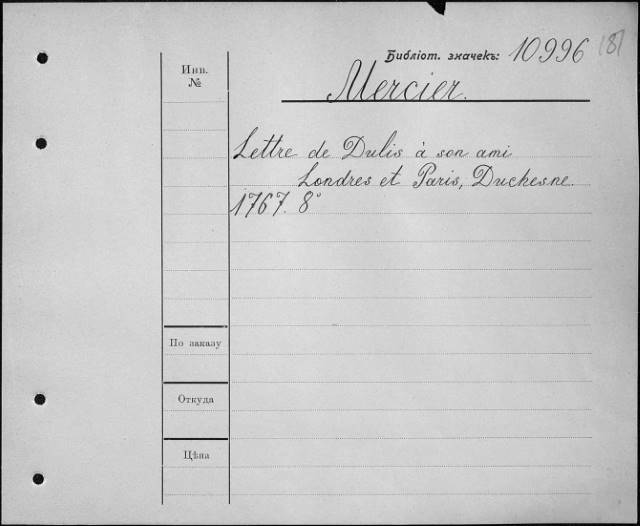 Библіот. значекъ: 10996
Инв.
№
Mercier.
Lettre de Dulis à son ami
Londres et Paris, Duchesne
1767. 8°
По заказу
Откуда
Цѣна